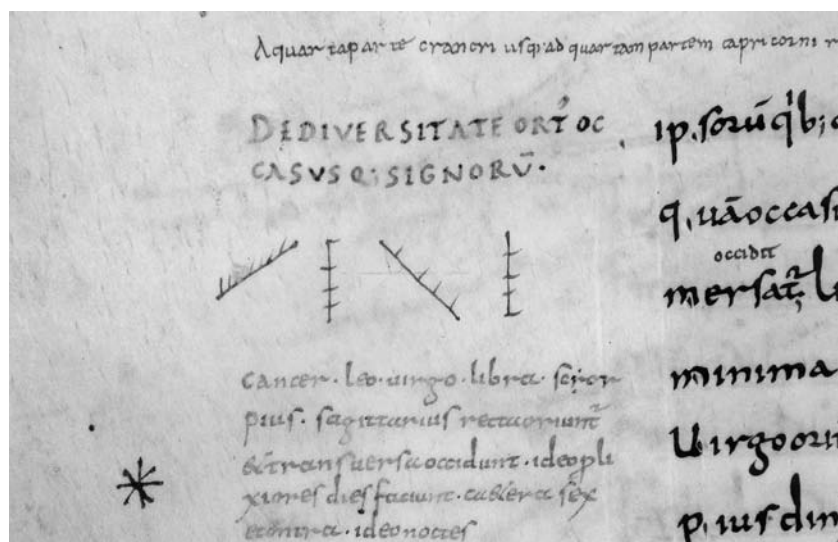 A quarta parte crancri usq; ad quartam partem capricorni
DE DIVERSITATE ORT' OC
CASUSQ; SIGNORŪ.
cancer · leo · uirgo · libra · scor
pius · sagittarius recta oriunt̄
& transuersa occidunt · ideo pli
xiores dies faciunt · cetera sex
econtra · ideo noctes
ip.sorū qib;
q, uā occas
occidit
mersat̄
minima
Uirgo ori
p, ius dim